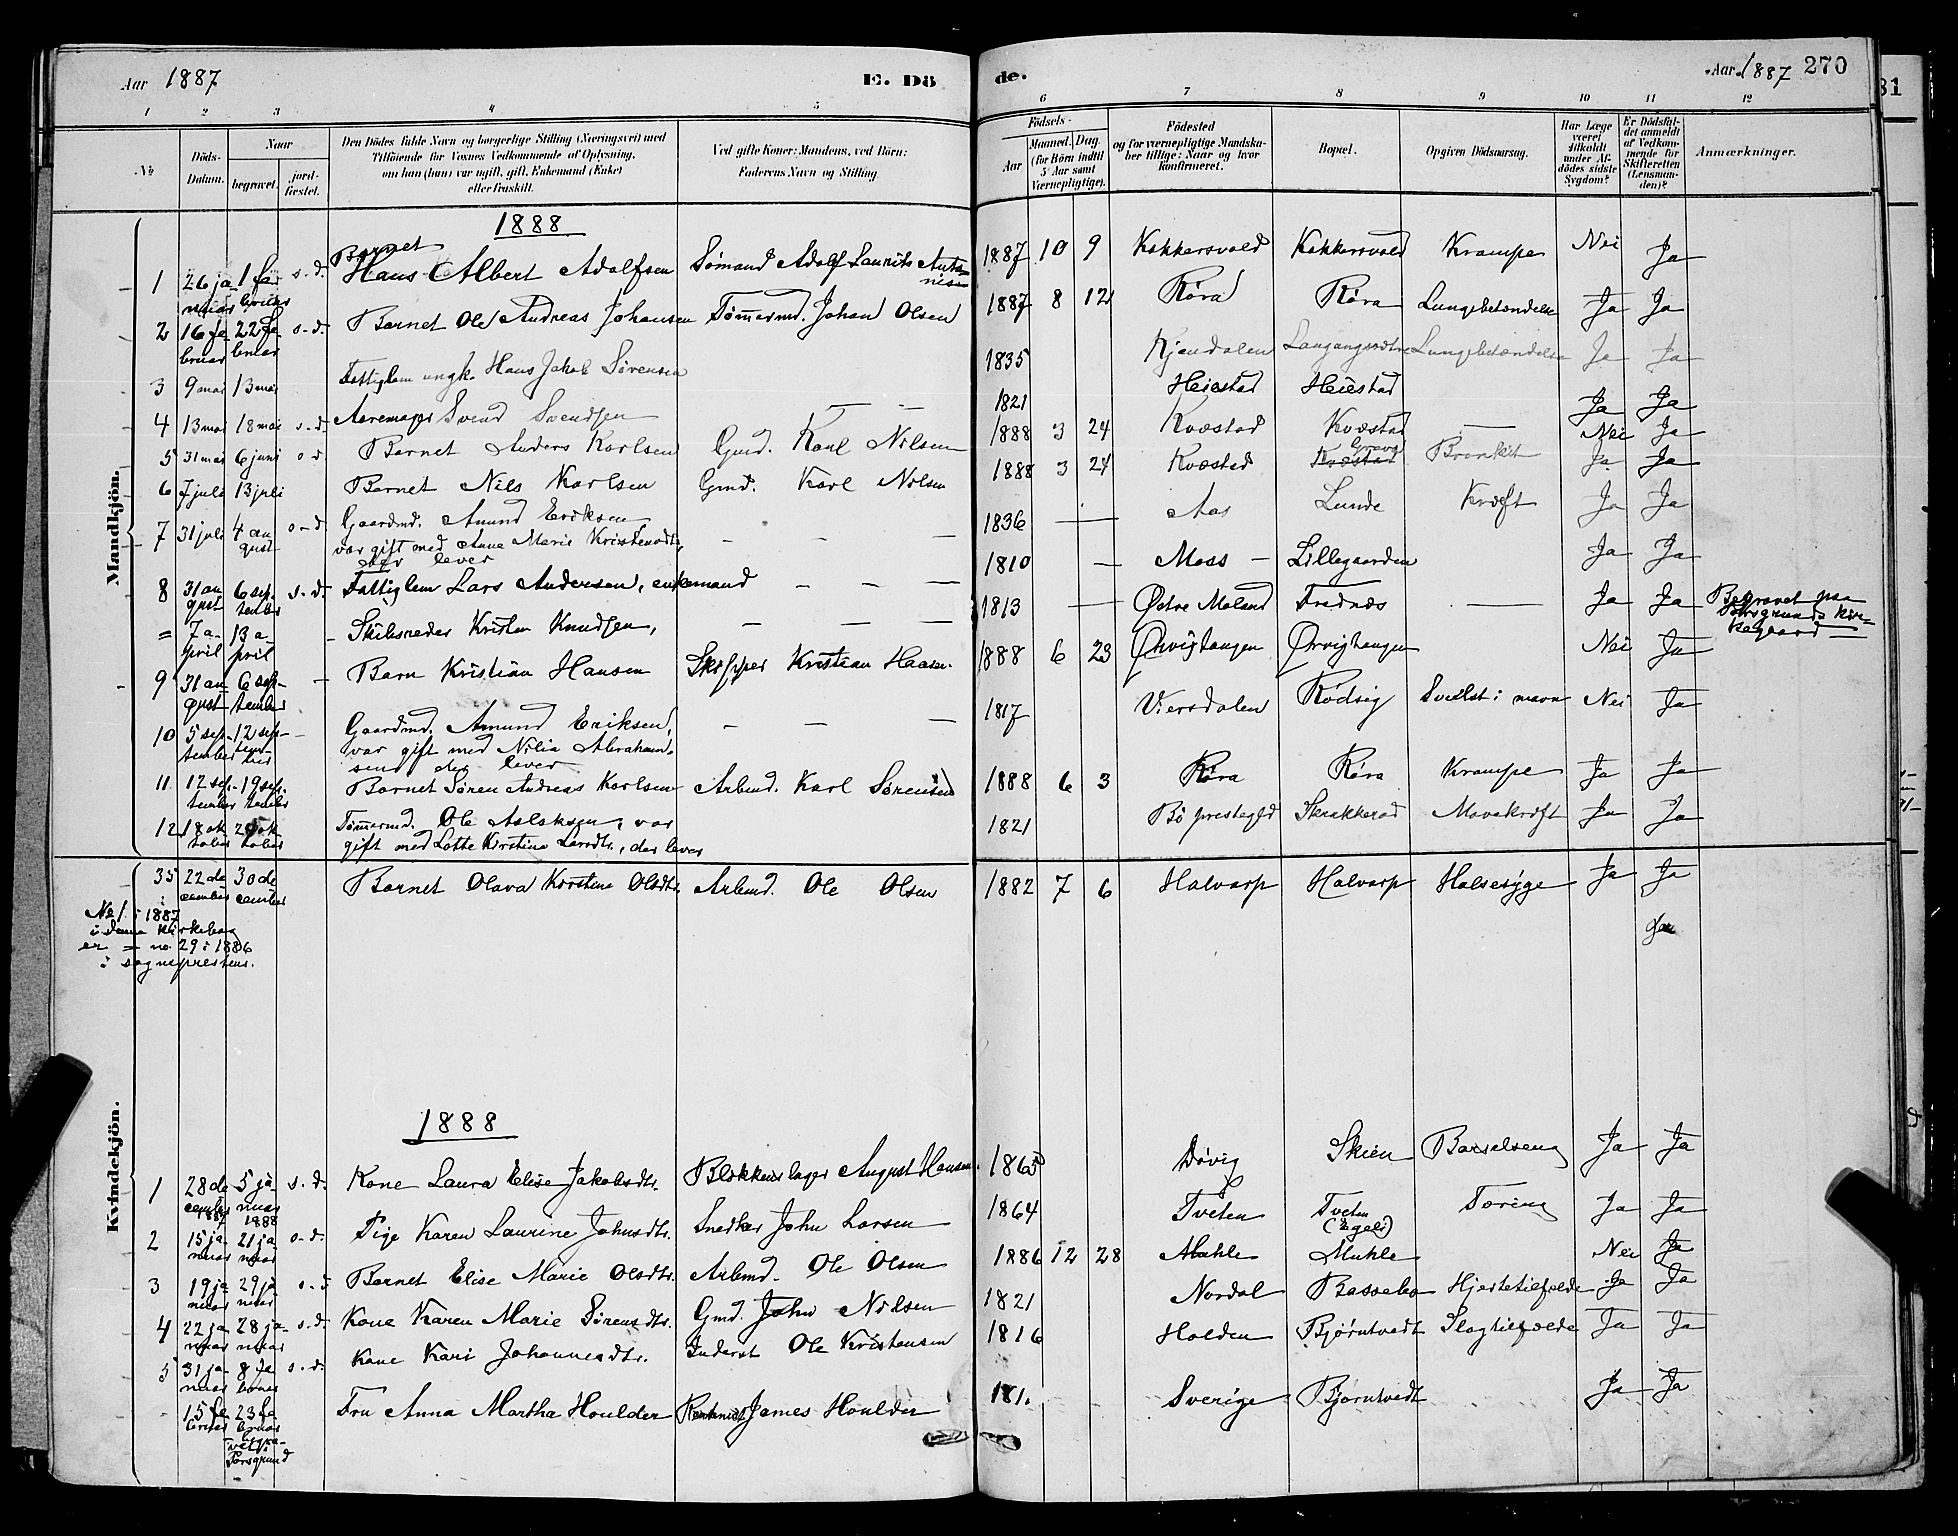 Aar 1887 E. Dö de. Aar 1887 270
81
1 2 3 4 5 6 7 8 9 10 11 12
No
Döds-Datum.
Naar
begravet.
jordfæstet.
Den Dödes fulde Navn og borgerlige Stilling (Næringsvei) med
Tilföiende for Voxnes Vedkommende af Oplysning,
om han (hun) var ugift, gift, Enkemand (Enke)
eller fraskilt.
Ved gifte Koner: Mandens, ved Börn:
Faderens Navn og Stilling.
Födsels-
Aar
Maaned. Dag.
(for Börn indtil
5 Aar samt
Værnepligtige).
Födested
og for værnepligtige Mandska-
ber tillige: Naar og hvor
konfirmeret.
Bopæl.
Opgiven Dödsaarsag.
Har Læge
været
tilkaldt
under Af-
dödes sidste
Sygdom?
Er Dödsfal-
det anmeldt
af Vedkom-
mende for
Skifteretten
(Lensman-
den)?
Anmærkninger.
Mandkjön.
1888
1 26 januar 1 februar s.d. Barnet Hans Albert Adolfsen Sømand Adolf Laurits Antonisen 1887 10 9 Kokkersvold Kokkersvold Krampe Nei Ja
2 16 februar 22 februar s.d. Barnet Ole Andreas Johansen Tømmermd. Johan Olsen 1887 8 12 Røra Røra Lungebetændelse Ja Ja
3 9 mai 13 mai Fattiglem ungk. Hans Jakob Sørensen 1835 Kjendalen Langangs Lungebetændelse Ja Ja
4 13 mai 18 mai s.d. Svend Svendsen — — 1821 Heiestad Heiestad Ja Ja
5 31 mai 6 juni s.d. Barnet Anders Karlsen Gmd. Karl Nilsen 1888 3 24 Kvæstad Kvæstad — Nei Ja
6 7 juli 13 juli Barnet Nils Karlsen Gmd. Karl Nilsen 1888 3 24 Kvæstad Kvæstad Grava Bronkit Ja Ja
7 31 juli 4 august s.d. Gaardmd. Amund Eriksen,
var gift med Anne Marie Kristensdtr,
der lever — — — 1836 — Aas Lunde Kræft Ja Ja
8 31 august 6 september s.d. Fattiglem Lars Andersen, enkemand — — — 1810 — Moss — Lillegaarden Ja Ja
= 7 april 13 april — Skibsreder Kristen Knudsen, — — — 1813 — Østre Moland Frednes — Ja Ja Begravet paa
Porsgrunds kirkegaard —
9 31 august 6 september — Barn Kristian Hansen Skipper Kristian Hansen 1888 6 23 Ørvigtangen Ørvigtangen Nei Ja
10 5 september 12 september — Gaardmd. Amund Eriksen,
var gift med Nilia Abraham-
sen, der lever — — — 1817 Viersdalen Rødsig Svulst i maven Nei Ja
11 12 september 19 september Barnet Søren Andreas Karlsen Arbmd. Karl Sørensen 1888 6 3 Røra Røra Krampe Ja Ja
12 18 oktober oktober Tømmermd. Ole Aslaksen, var
gift med Lotte Kirstine Larsdtr., der lever 1821 Bö prestegjld Skrakkerød Mavekræft Ja Ja
35 22 december 30 december Barnet Olava Kirstine Olsdtr. Arbmd. Ole Olsen 1882 7 6 Halvarp Halvarp Halsesyge Ja Ja
No 1 i 1887
i denne kirkebog
er = no. 29 i 1886
i sogneprestens.
Ja
Kvindekjön.
1888
1 28 december 1887 5 januar 1888 s.d. Kone Laura Elise Jakobsdtr. Blokkemager August Hansen 1865 Døvig Skien Barselseng Ja Ja
2 15 januar 21 januar s.d. Pige Karen Laurine Johnsdtr. Snedker John Larsen 1864 Tveten Tveten Tæring Ja Ja
3 19 januar 29 januar s.d. Barnet Elise Marie Olsdtr. Arbmd. Ole Olsen 1886 12 28 Mahle Muhle Nei Ja
4 22 januar 28 januar s.d. Kone Karen Marie Sørensdtr. Gmd. John Nilsen 1821 Nordal Bassebo Hjertetilfælde Ja Ja
5 31 januar 8 februar s.d. Kone Kari Johannesdtr. Inderst Ole Kristensen 1816 Holden Bjørntvedt Slagtilfælde Ja Ja
15 februar 23 februar begravet i Porsgrund Fru Anna Martha Houlder James Houlder 181. Sverige Bjørntvedt Ja Ja